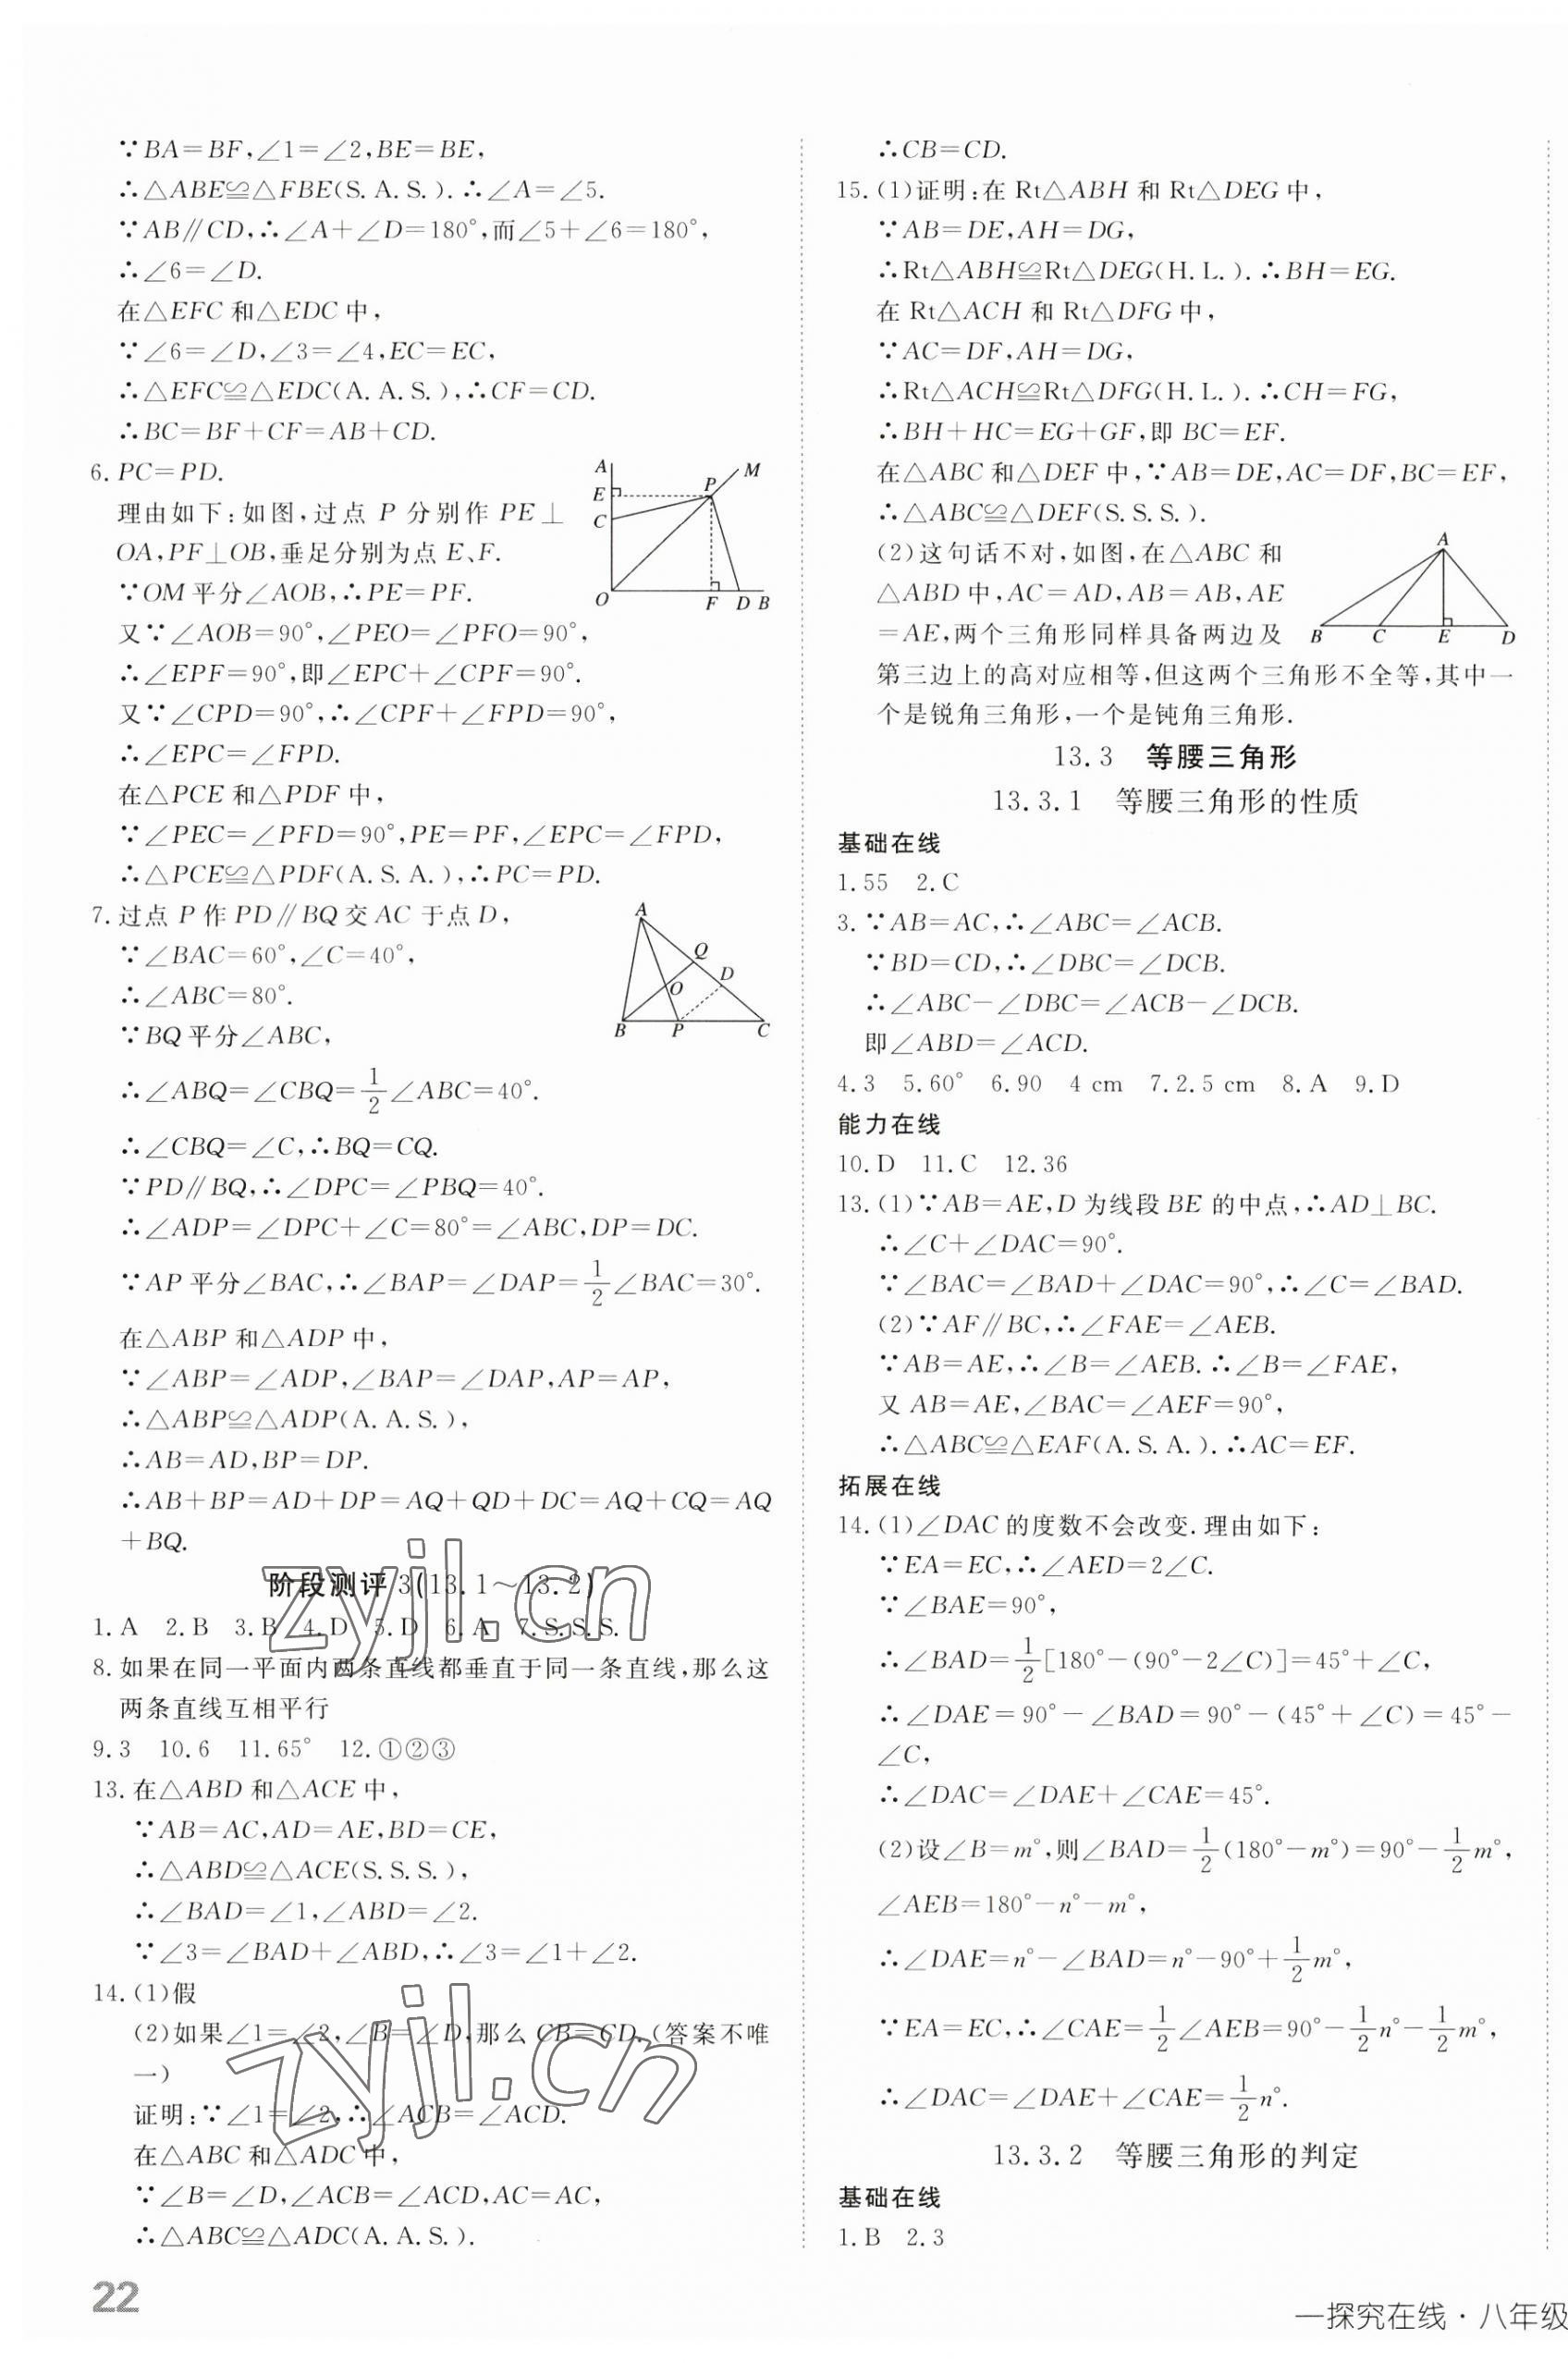 ∵BA=BF,∠1=∠2,BE=BE,
∴△ABE≌△FBE(S.A.S.).∴∠A=∠5.
∵AB∥CD,∴∠A+∠D=180°,而∠5+∠6=180°,
∴∠6=∠D.
在△EFC和△EDC中,
∵∠6=∠D,∠3=∠4,EC=EC,
∴△EFC≌△EDC(A.A.S.),∴CF=CD.
∴BC=BF+CF=AB+CD.
6.PC=PD.
理由如下:如图,过点P分别作PE⊥
OA,PF⊥OB,垂足分别为点E、F.
∵OM平分∠AOB,∴PE=PF.
又∵∠AOB=90°,∠PEO=∠PFO=90°,
∴∠EPF=90°,即∠EPC+∠CPF=90°.
又∵∠CPD=90°,∴∠CPF+∠FPD=90°,
∴∠EPC=∠FPD.
在△PCE和△PDF中,
∵∠PEC=∠PFD=90°,PE=PF,∠EPC=∠FPD,
∴△PCE≌△PDF(A.S.A.),∴PC=PD.
A
E
C
O
P
M
F D B
7.过点P作PD∥BQ交AC于点D,
∵∠BAC=60°,∠C=40°,
∴∠ABC=80°.
∵BQ平分∠ABC,
∴∠ABQ=∠CBQ=1/2∠ABC=40°.
∴∠CBQ=∠C,∴BQ=CQ.
∵PD∥BQ,∴∠DPC=∠PBQ=40°.
∴∠ADP=∠DPC+∠C=80°=∠ABC,DP=DC.
∵AP平分∠BAC,∴∠BAP=∠DAP=1/2∠BAC=30°.
在△ABP和△ADP中,
∵∠ABP=∠ADP,∠BAP=∠DAP,AP=AP,
∴△ABP≌△ADP(A.A.S.),
∴AB=AD,BP=DP.
∴AB+BP=AD+DP=AQ+QD+DC=AQ+CQ=AQ
+BQ.
A
Q
D
O
B P C
阶段测评3(13.1～13.2)
1.A 2.B 3.B 4.D 5.D 6.A 7.S.S.S.
8.如果在同一平面内两条直线都垂直于同一条直线,那么这
两条直线互相平行
9.3 10.6 11.65° 12.①②③
13.在△ABD和△ACE中,
∵AB=AC,AD=AE,BD=CE,
∴△ABD≌△ACE(S.S.S.),
∴∠BAD=∠1,∠ABD=∠2.
∵∠3=∠BAD+∠ABD,∴∠3=∠1+∠2.
14.(1)假
(2)如果∠1=∠2,∠B=∠D,那么CB=CD.(答案不唯
一)
证明:∵∠1=∠2,∴∠ACB=∠ACD.
在△ABC和△ADC中,
∵∠B=∠D,∠ACB=∠ACD,AC=AC,
∴△ABC≌△ADC(A.A.S.).
22
∴CB=CD.
15.(1)证明:在Rt△ABH和Rt△DEG中,
∵AB=DE,AH=DG,
∴Rt△ABH≌Rt△DEG(H.L.).∴BH=EG.
在Rt△ACH和Rt△DFG中,
∵AC=DF,AH=DG,
∴Rt△ACH≌Rt△DFG(H.L.).∴CH=FG,
∴BH+HC=EG+GF,即BC=EF.
在△ABC和△DEF中,∵AB=DE,AC=DF,BC=EF,
∴△ABC≌△DEF(S.S.S.).
(2)这句话不对,如图,在△ABC和
△ABD中,AC=AD,AB=AB,AE
=AE,两个三角形同样具备两边及
第三边上的高对应相等,但这两个三角形不全等,其中一
个是锐角三角形,一个是钝角三角形.
A
B C E D
13.3 等腰三角形
13.3.1 等腰三角形的性质
基础在线
1.55 2.C
3.∵AB=AC,∴∠ABC=∠ACB.
∵BD=CD,∴∠DBC=∠DCB.
∴∠ABC-∠DBC=∠ACB-∠DCB.
即∠ABD=∠ACD.
4.3 5.60° 6.90 4 cm 7.2.5 cm 8.A 9.D
能力在线
10.D 11.C 12.36
13.(1)∵AB=AE,D为线段BE的中点,∴AD⊥BC.
∴∠C+∠DAC=90°.
∵∠BAC=∠BAD+∠DAC=90°,∴∠C=∠BAD.
(2)∵AF∥BC,∴∠FAE=∠AEB.
∵AB=AE,∴∠B=∠AEB.∴∠B=∠FAE,
又AB=AE,∠BAC=∠AEF=90°,
∴△ABC≌△EAF(A.S.A.).∴AC=EF.
拓展在线
14.(1)∠DAC的度数不会改变.理由如下:
∵EA=EC,∴∠AED=2∠C.
∵∠BAE=90°,
∴∠BAD=1/2[180°-(90°-2∠C)]=45°+∠C,
∴∠DAE=90°-∠BAD=90°-(45°+∠C)=45°-
∠C,
∴∠DAC=∠DAE+∠CAE=45°.
(2)设∠B=m°,则∠BAD=1/2(180°-m°)=90°-1/2m°,
∠AEB=180°-n°-m°,
∴∠DAE=n°-∠BAD=n°-90°+1/2m°,
∵EA=EC,∴∠CAE=1/2∠AEB=90°-1/2n°-1/2m°,
∴∠DAC=∠DAE+∠CAE=1/2n°.
13.3.2 等腰三角形的判定
基础在线
1.B 2.3
一探究在线·八年级
zyjl.cn
zyjl.cn